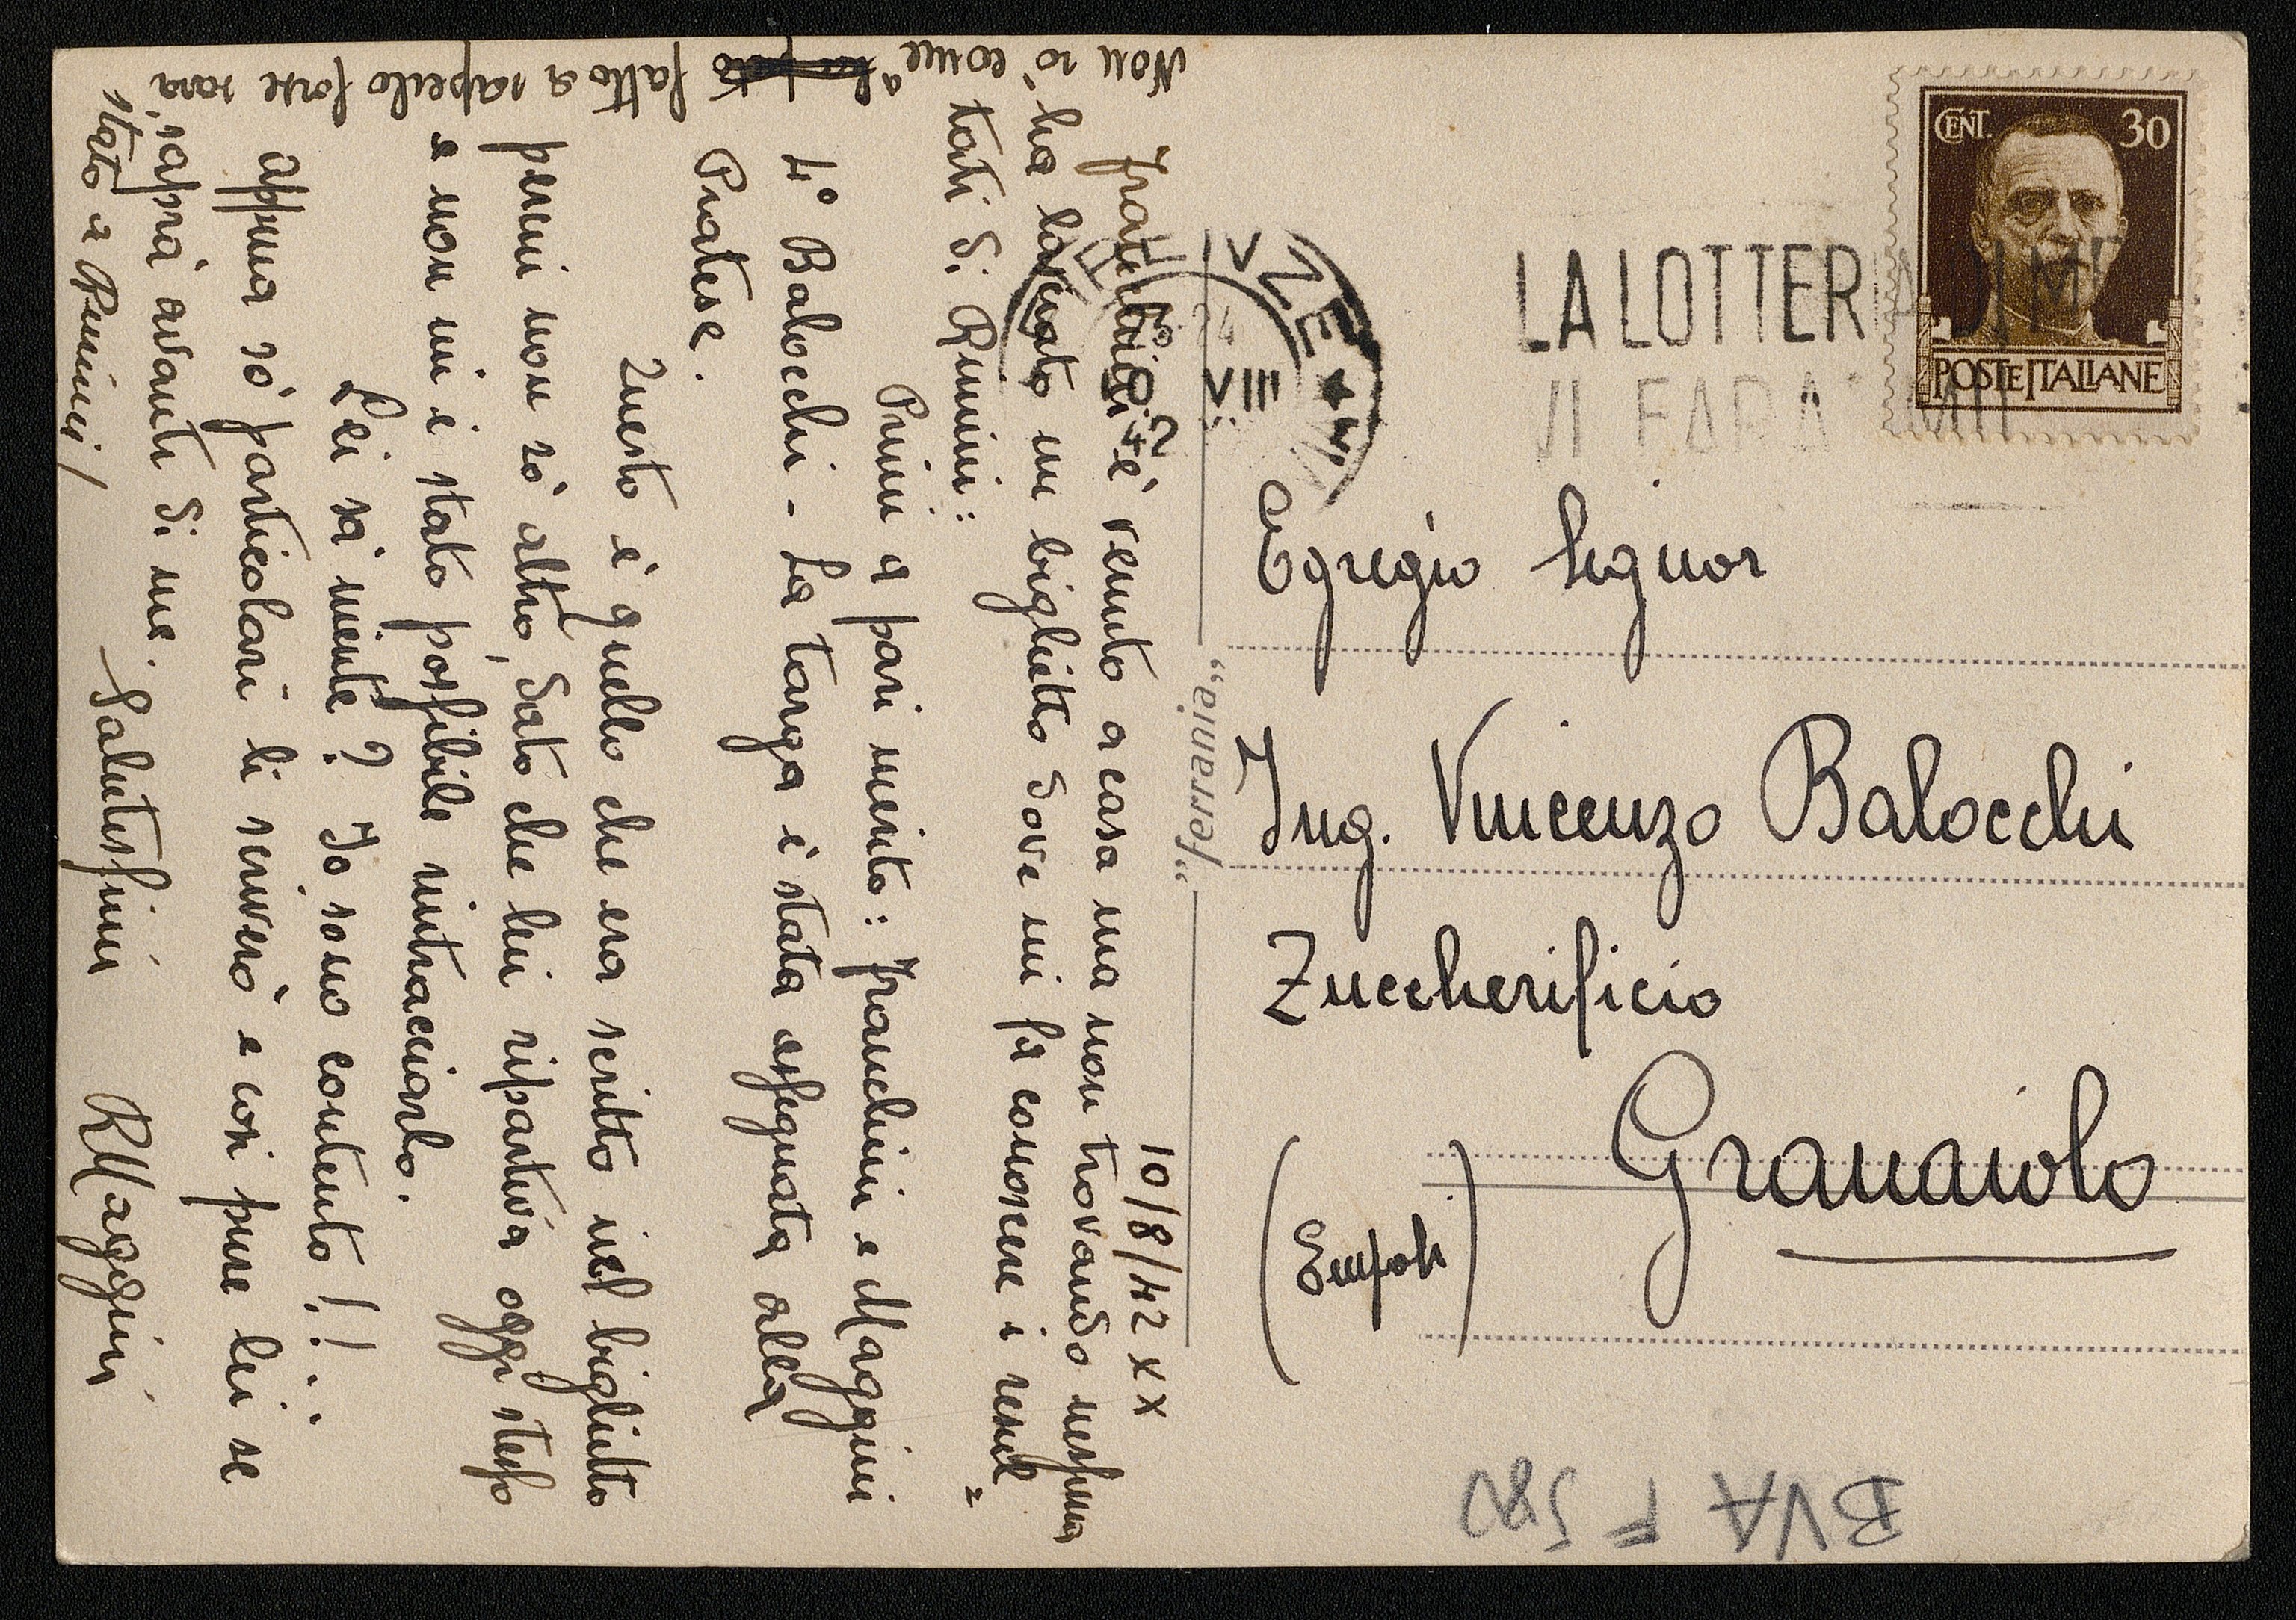 10/8/42 XX
Franchini è venuto a casa ma non trovando nessuno
ha lasciato un biglietto dove mi fa conoscere i resul=
tati di Rimini:
Primi a pari merito: Franchini e Maggini
4° Balocchi - La targa è stata assegnata alla
Pratese.
Questo è quello che era scritto nel biglietto
perciò non sò altro, dato che lui ripartiva oggi stesso
e non mi è stato possibile rintracciarlo.
Lei sà niente? Io sono contento!!..
appena sò particolari li scriverò e così pure lei se
saprà avanti di me. Salutissimi
RMaggini
Non sò come ha fatto a saperlo forse sarà
stato a Rimini/
"ferrania"
CENT. 30
POSTE ITALIANE
LA LOTTERIA DI ME
VI FARA' MIL
FIRENZE
VIII
Egregio Signor
Ing. Vincenzo Balocchi
Zuccherificio
Granaiolo
(Empoli)
BVA F 580